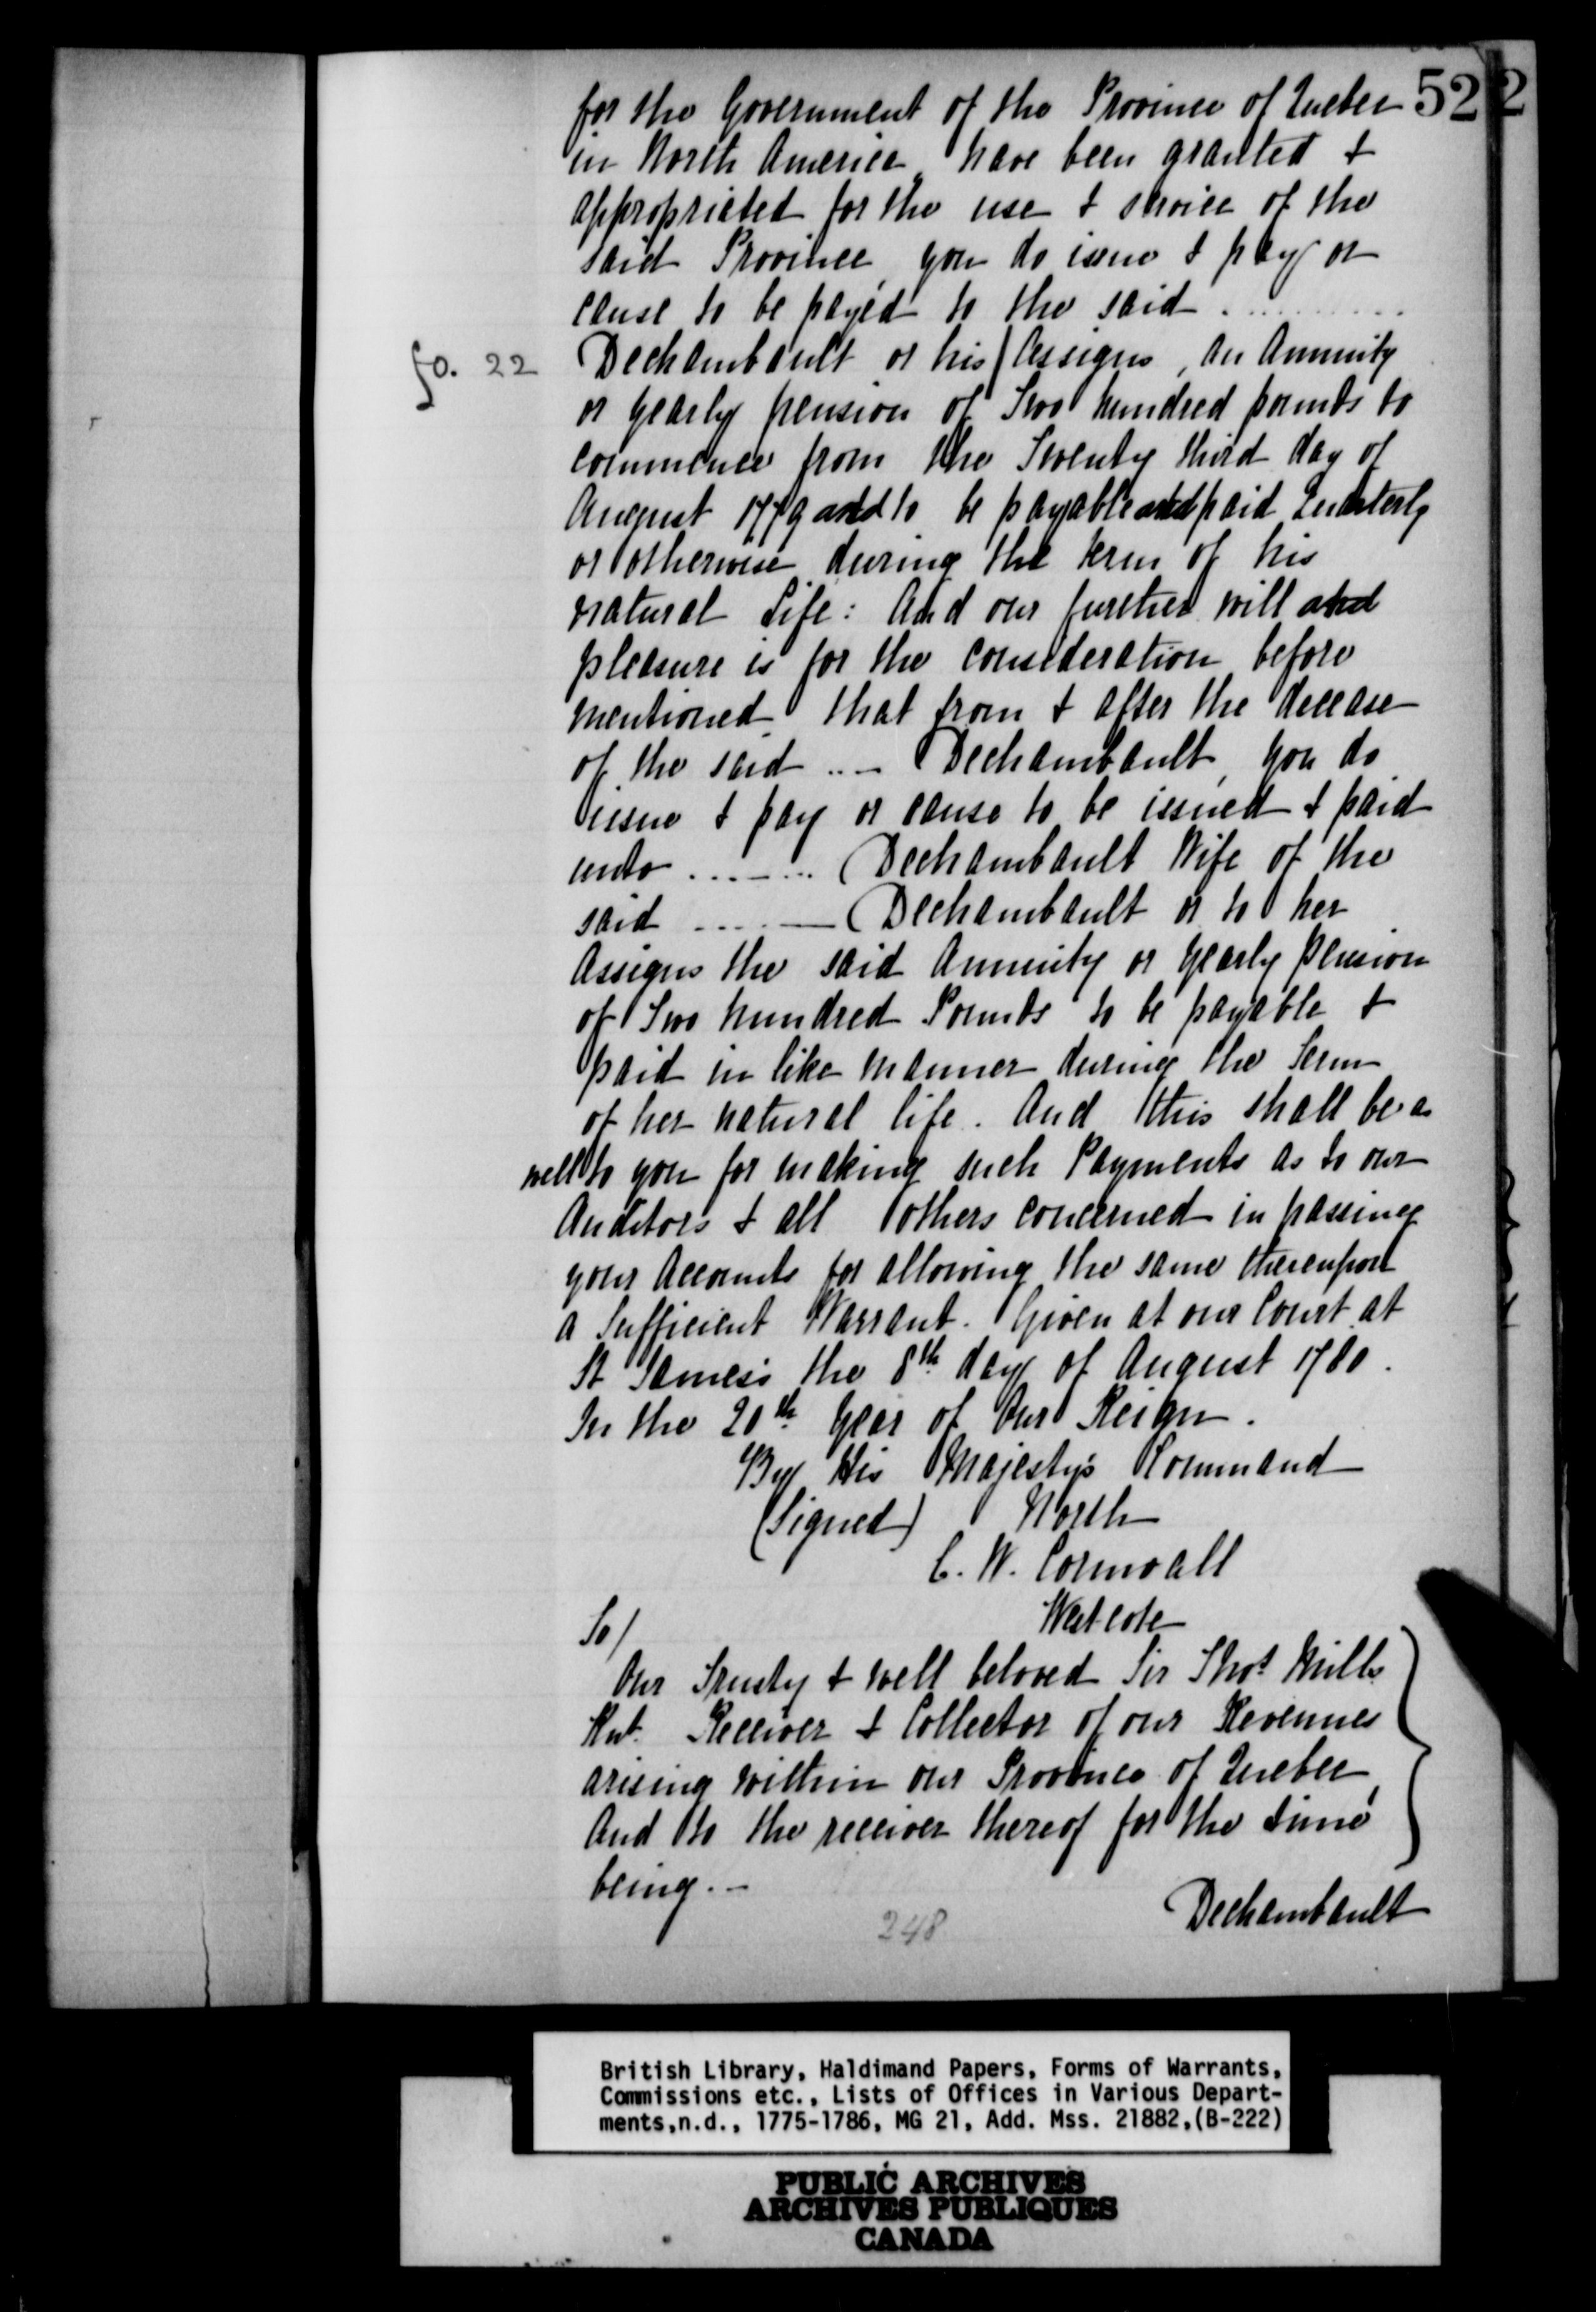 for the Government of the Province of Quebec 52
in North America, have been granted &
appropriated for the use & service of the
said Province, you do issue & pay or
cause to be payed to the said ..........
fo. 22 Dechambault or his / Assigns, an Annuity
or yearly pension of Two hundred pounds to
commence from the Twenty third day of
August 1779 and to be payable and paid Quarterly
or otherwise during the term of his
natural Life: And our further will and
pleasure is for the consideration before
mentioned, that from & after the decease
of the said ... Dechambault, you do
issue & pay or cause to be issued & paid
unto ....... Dechambault Wife of the
said ..... Dechambault or to her
Assigns the said Annuity or yearly pension
of Two hundred Pounds to be payable &
paid in like manner during the Term
of her natural life. And this shall be as
well to you for making such Payments as to our
Auditors & all others concerned in passing
your Accounts for allowing the same thereupon
a Sufficient Warrant. Given at our Court at
St James's the 8th day of August 1780.
In the 20th Year of Our Reign.
By His Majesty's Command
(Signed) North
C. W. Cornwall
Westcote
To/
Our Trusty & well beloved Sir Thos Mills
Knt. Receiver & Collector of our Revenues
arising within our Province of Quebec,
And to the receiver thereof for the time
being.-
Dechambault
248
British Library, Haldimand Papers, Forms of Warrants,
Commissions etc., Lists of Offices in Various Depart-
ments,n.d., 1775-1786, MG 21, Add. Mss. 21882,(B-222)
PUBLIC ARCHIVES
ARCHIVES PUBLIQUES
CANADA